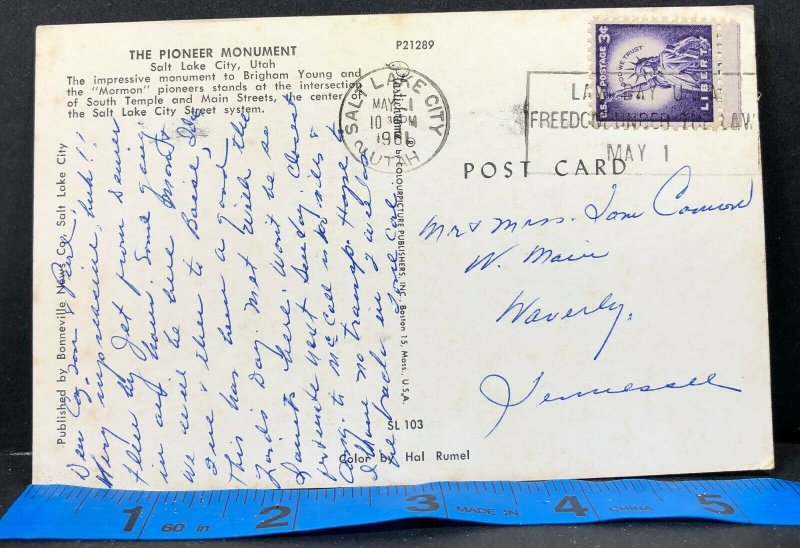 THE PIONEER MONUMENT
Salt Lake City, Utah
The impressive monument to Brigham Young and
the "Mormon" pioneers stands at the intersection
of South Temple and Main Streets, the center of
the Salt Lake City Street system.
P21289
Published by Bonneville News Co., Salt Lake City
Plastichrome by COLOURPICTURE PUBLISHERS, INC., Boston 15, Mass., U.S.A.
SL 103
Color by Hal Rumel
SALT LAKE CITY
MAY 1
10 PM
UTAH
LAW DAY U
FREEDOM UNDER THE LAW
MAY 1
U.S. POSTAGE 3¢
IN GOD WE TRUST
LIBERTY
POST CARD
Mr & Mrs. Tom
W. Main
Waverly,
Tennessee
Dear
Very impressive, huh!!
flew by Jet from Denver
in an hour. Some
we will be here
& then to Boise, Ida
This has been a good
Lord's Day. Met with the
Saints here. Won't be so
fortunate next Sunday. Closest
is 100 miles &
I have no transp. Hope to
be back in
1 60 in 2 3 MADE IN 4 CHINA 5